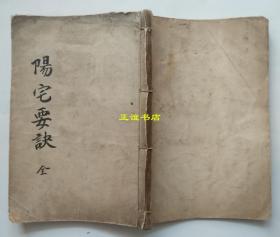 陽宅要訣
全
正谊书店